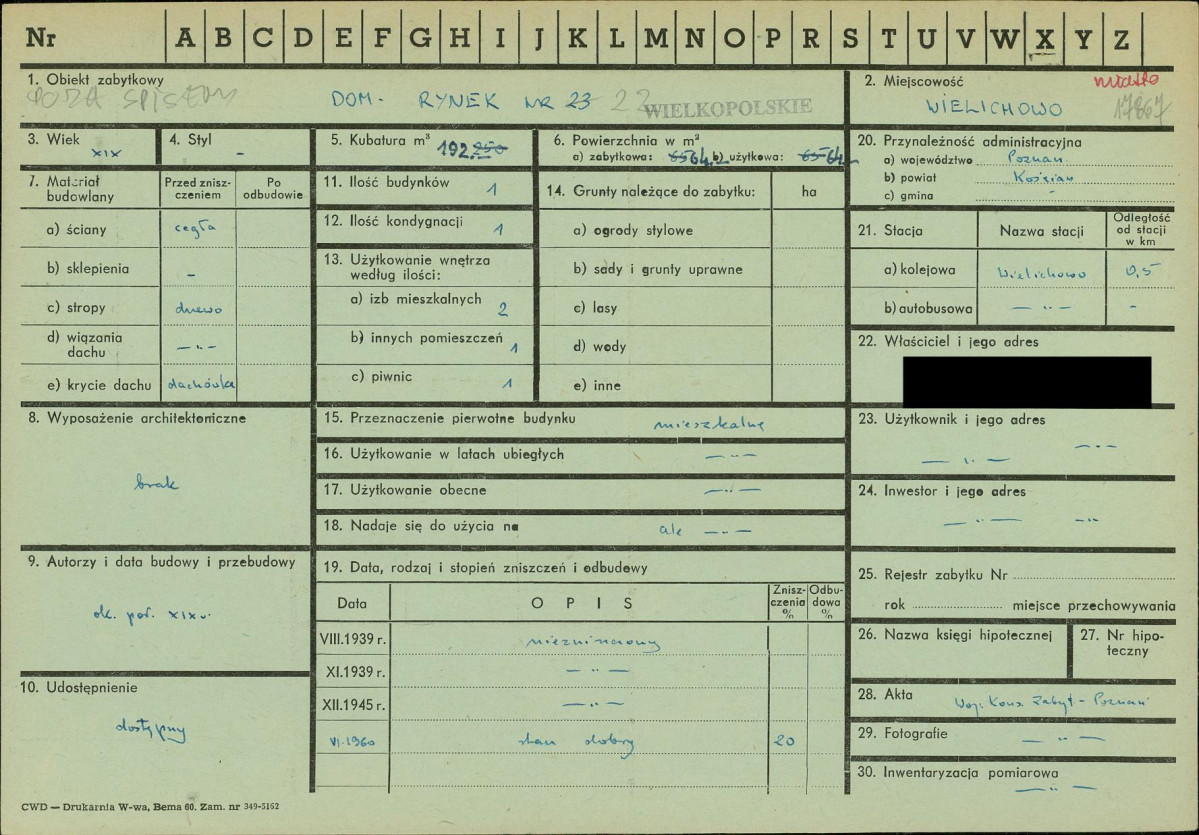 Nr A B C D E F G H I J K L M N O P R S T U V W X Y Z
1. Obiekt zabytkowy
POZA SPISEM
DOM - RYNEK NR 23 22
WIELKOPOLSKIE
2. Miejscowość
miasto
WIELICHOWO
17867
3. Wiek
XIX
4. Styl
-
5. Kubatura m³
192 250
6. Powierzchnia w m²
a) zabytkowa: 65 64 b) użytkowa: 65 64
20. Przynależność administracyjna
a) województwo Poznań
b) powiat Kościan
c) gmina -
7. Materiał budowlany
Przed zniszczeniem
Po odbudowie
a) ściany cegła
b) sklepienia -
c) stropy drewo
d) wiązania dachu — „ —
e) krycie dachu dachówka
11. Ilość budynków 1
12. Ilość kondygnacji 1
13. Użytkowanie wnętrza według ilości:
a) izb mieszkalnych 2
b) innych pomieszczeń 1
c) piwnic 1
14. Grunty należące do zabytku: ha
a) ogrody stylowe
b) sady i grunty uprawne
c) lasy
d) wody
e) inne
21. Stacja
Nazwa stacji
Odległość od stacji w km
a) kolejowa Wielichowo 0,5
b) autobusowa — „ — -
22. Właściciel i jego adres
8. Wyposażenie architektoniczne
brak
15. Przeznaczenie pierwotne budynku mieszkalne
16. Użytkowanie w latach ubiegłych — „ —
17. Użytkowanie obecne — „ —
18. Nadaje się do użycia na — „ —
23. Użytkownik i jego adres
— „ — — „ —
24. Inwestor i jego adres
— „ — — „ —
9. Autorzy i data budowy i przebudowy
ok. poł. XIX w.
19. Data, rodzaj i stopień zniszczeń i odbudowy
Data
OPIS
Zniszczenia %
Odbudowa %
VIII.1939 r. niezniszczony
XI.1939 r. — „ —
XII.1945 r. — „ —
VI.1960 stan dobry 20
25. Rejestr zabytku Nr
rok miejsce przechowywania
26. Nazwa księgi hipotecznej
27. Nr hipoteczny
10. Udostępnienie
dostępny
28. Akta Woj. Kons. Zabyt - Poznań
29. Fotografie — „ —
30. Inwentaryzacja pomiarowa
— „ —
CWD — Drukarnia W-wa, Bema 60. Zam. nr 349-5162